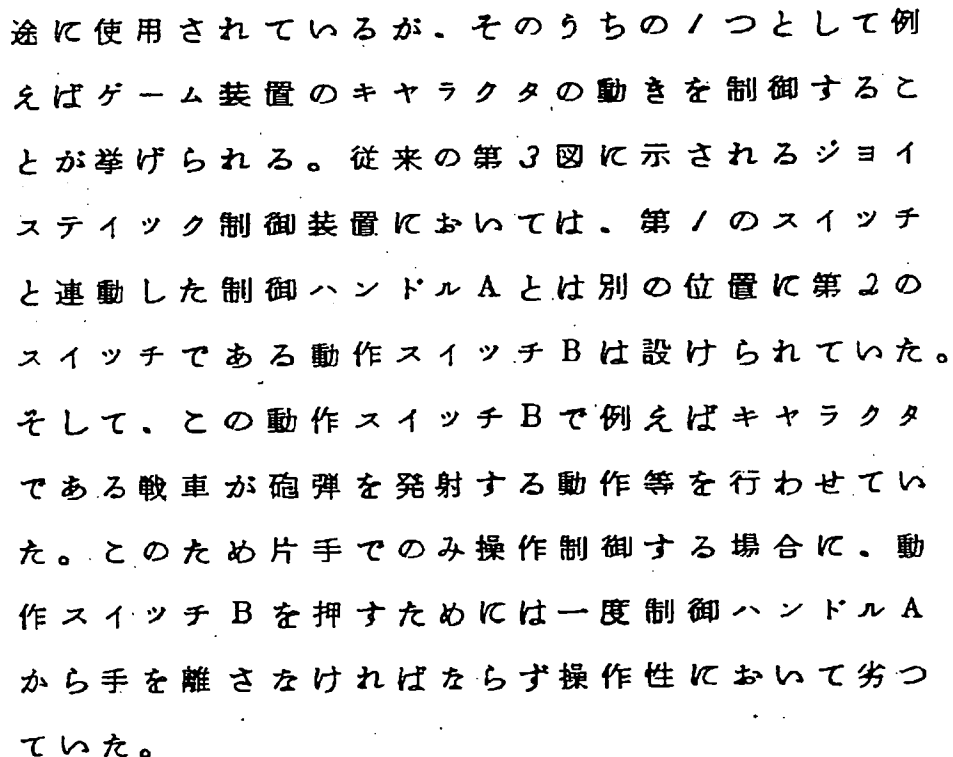 途に使用されているが、そのうちの1つとして例
えばゲーム装置のキヤラクタの動きを制御するこ
とが挙げられる。従来の第3図に示されるジヨイ
ステイツク制御装置においては、第1のスイツチ
と連動した制御ハンドルAとは別の位置に第2の
スイツチである動作スイツチBは設けられていた。
そして、この動作スイツチBで例えばキヤラクタ
である戦車が砲弾を発射する動作等を行わせてい
た。このため片手でのみ操作制御する場合に、動
作スイツチBを押すためには一度制御ハンドルA
から手を離さなければならず操作性において劣つ
ていた。